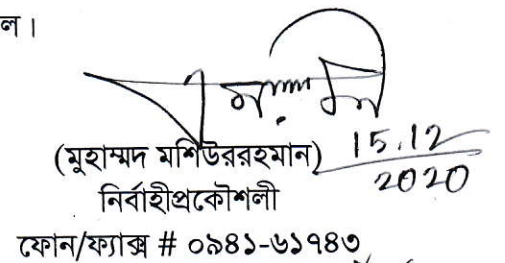 ল।
(মুহাম্মদ মশিউররহমান) 15.12
2020
নির্বাহীপ্রকৌশলী
ফোন/ফ্যাক্স # ০৯৪১-৬১৭৪৩